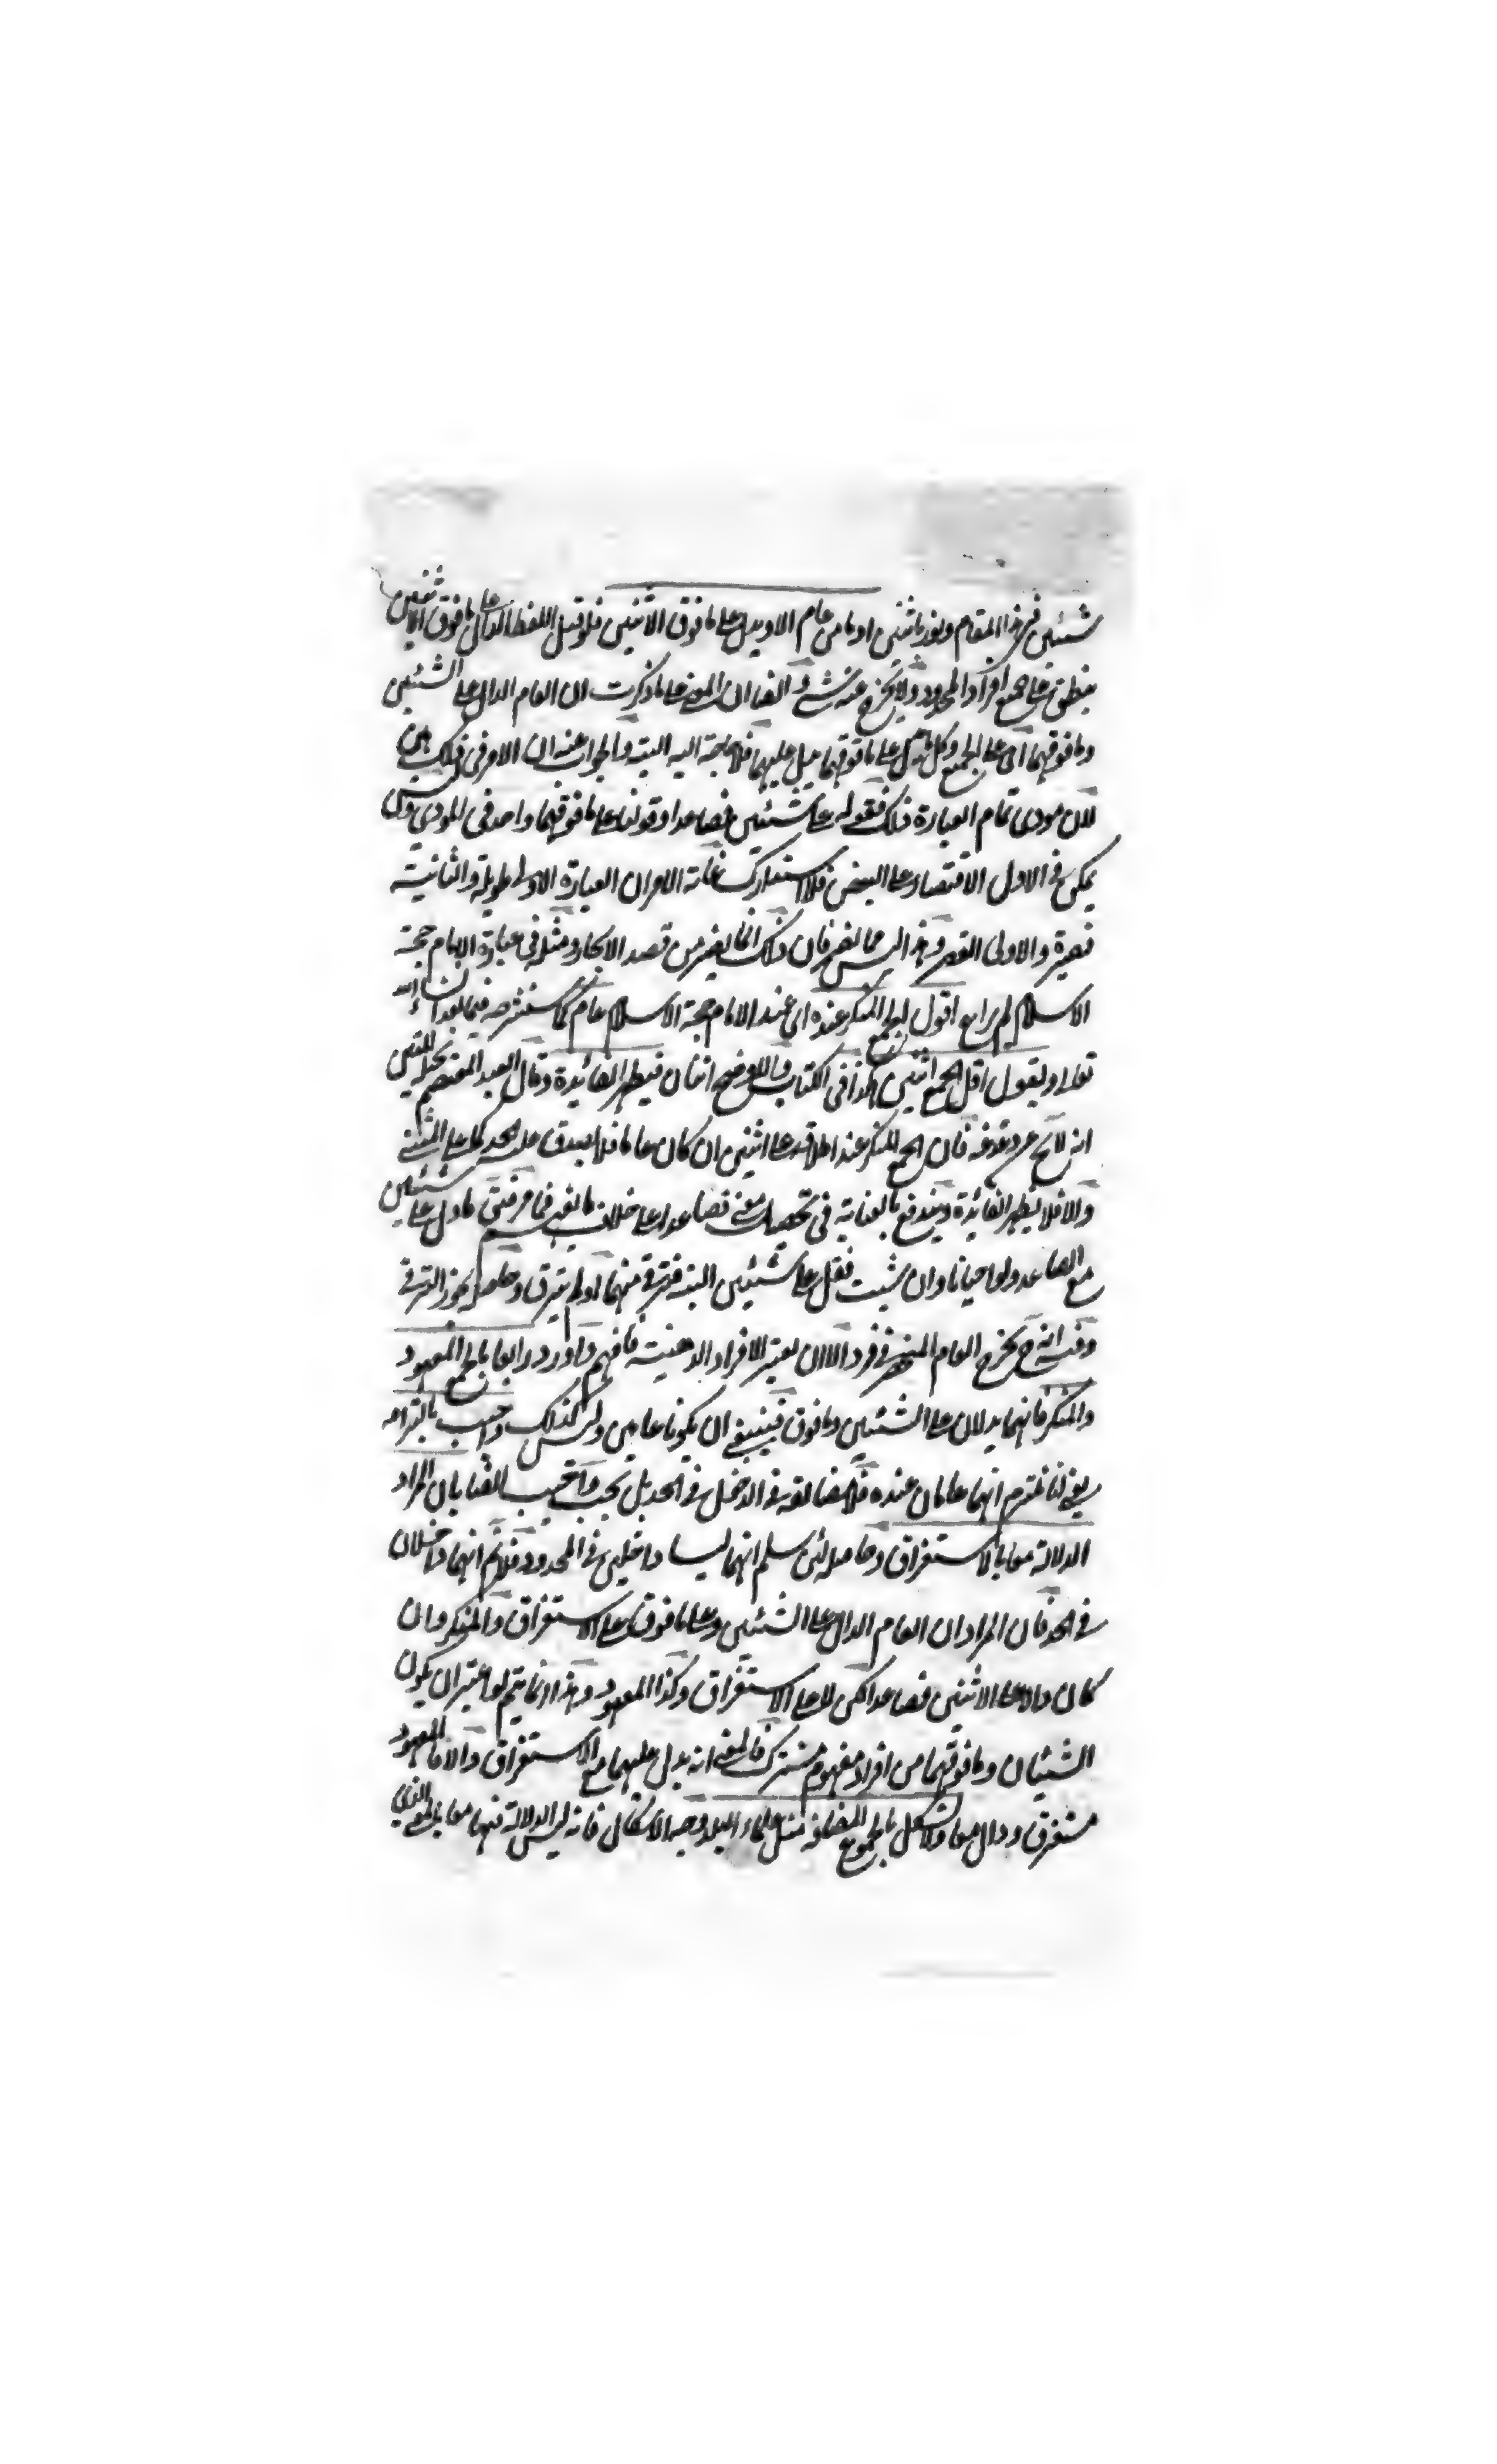 شيئين في هذا المقام وفوز باثنين اذ ما من عام الا ويدل على ما فوق الاثنين فلو قيل اللفظ الدال على ما فوق الاثنين
ينطبق على جميع افراد المحدود ولا يخرج عنه شيء وايضا ان المعنى على ما ذكرت ان العام الدال على الشيئين
وما فوقهما اي على الجمع وكل ما يدل على ما فوقهما يدل عليهما فلا حاجة اليه البتة والجواب عنه ان الامر في ذلك هين
لان مودى تمام العبارة ذلك فقوله على شيئين فصاعدا وقولنا على ما فوقهما واحد في المودى وليس
يمكن في الاول الاقتصار على البعض فلا استدراك غاية الامر ان العبارة الاولى طويلة والثانية
قصيرة والاولى القصر وهذا ليس مما يضر فان ذلك انما يضر من قصد الايجاز ومثله في عبارة الامام حجة
الاسلام لم يراع اقول الجمع المنكر عنده اي عند الامام حجة الاسلام عام كما سنشرحه فيما بعد ان شاء الله
تعالى ويقول اقل الجمع اثنين هكذا في الكتاب والاوضح اثنان فيظهر الفائدة وقال العبد المعتصم بحبله المتين
انه لا يخ عن دغدغة فان الجمع المنكر عند اطلاقه على اثنين ان كان عاما فلا يصدق عليه الحد كما على المثنى
والا فلا يظهر الفائدة ويندفع بالعناية في تحصيل معنى فصاعدا على خلاف ما يفهم فيما مر فتى ما دل على شيئين
مع الصاعد ولو احيانا وان شئت فقل على شيئين البتة فترقى منهما او لم يترق وحاصله يجوز الترقي
وفيه انه ح يخرج العام المنحصر في فرد الا ان يعتبر الافراد الذهنية فافهم واورد رابعا بالجمع المعهود
والمنكر فانهما يدلان على الشيئين وما فوق فينبغي ان يكونا عامين وليس كذلك واجيب بالتزامه
يعني انا نلتزم انهما عامان عنده فلا مضايقة في الدخول في الحد بل يجب واجيب ايضا بان المراد
الدلالة معا بالاستغراق وحاصله لئن سلم انهما ليسا داخلين في المحدود فلا نم انهما داخلان
في الحد فان المراد ان العام الدال على الشيئين وعلى ما فوق على الاستغراق والمنكر وان
كان دالا على الاثنين فصاعدا لكن لا على الاستغراق وكذا المعهود وهذا انما يتم لو اعتبر ان يكون
الشيئان وما فوقهما من افراد مفهوم مشترك فالمعنى انه يدل عليهما مع الاستغراق والا فالمعهود
مستغرق ودال معا ولا شكل بالجموع المضافة مثل علماء البلد وجه الاشكال فانه ليس الدلالة فيها معا بالمعنى الذي